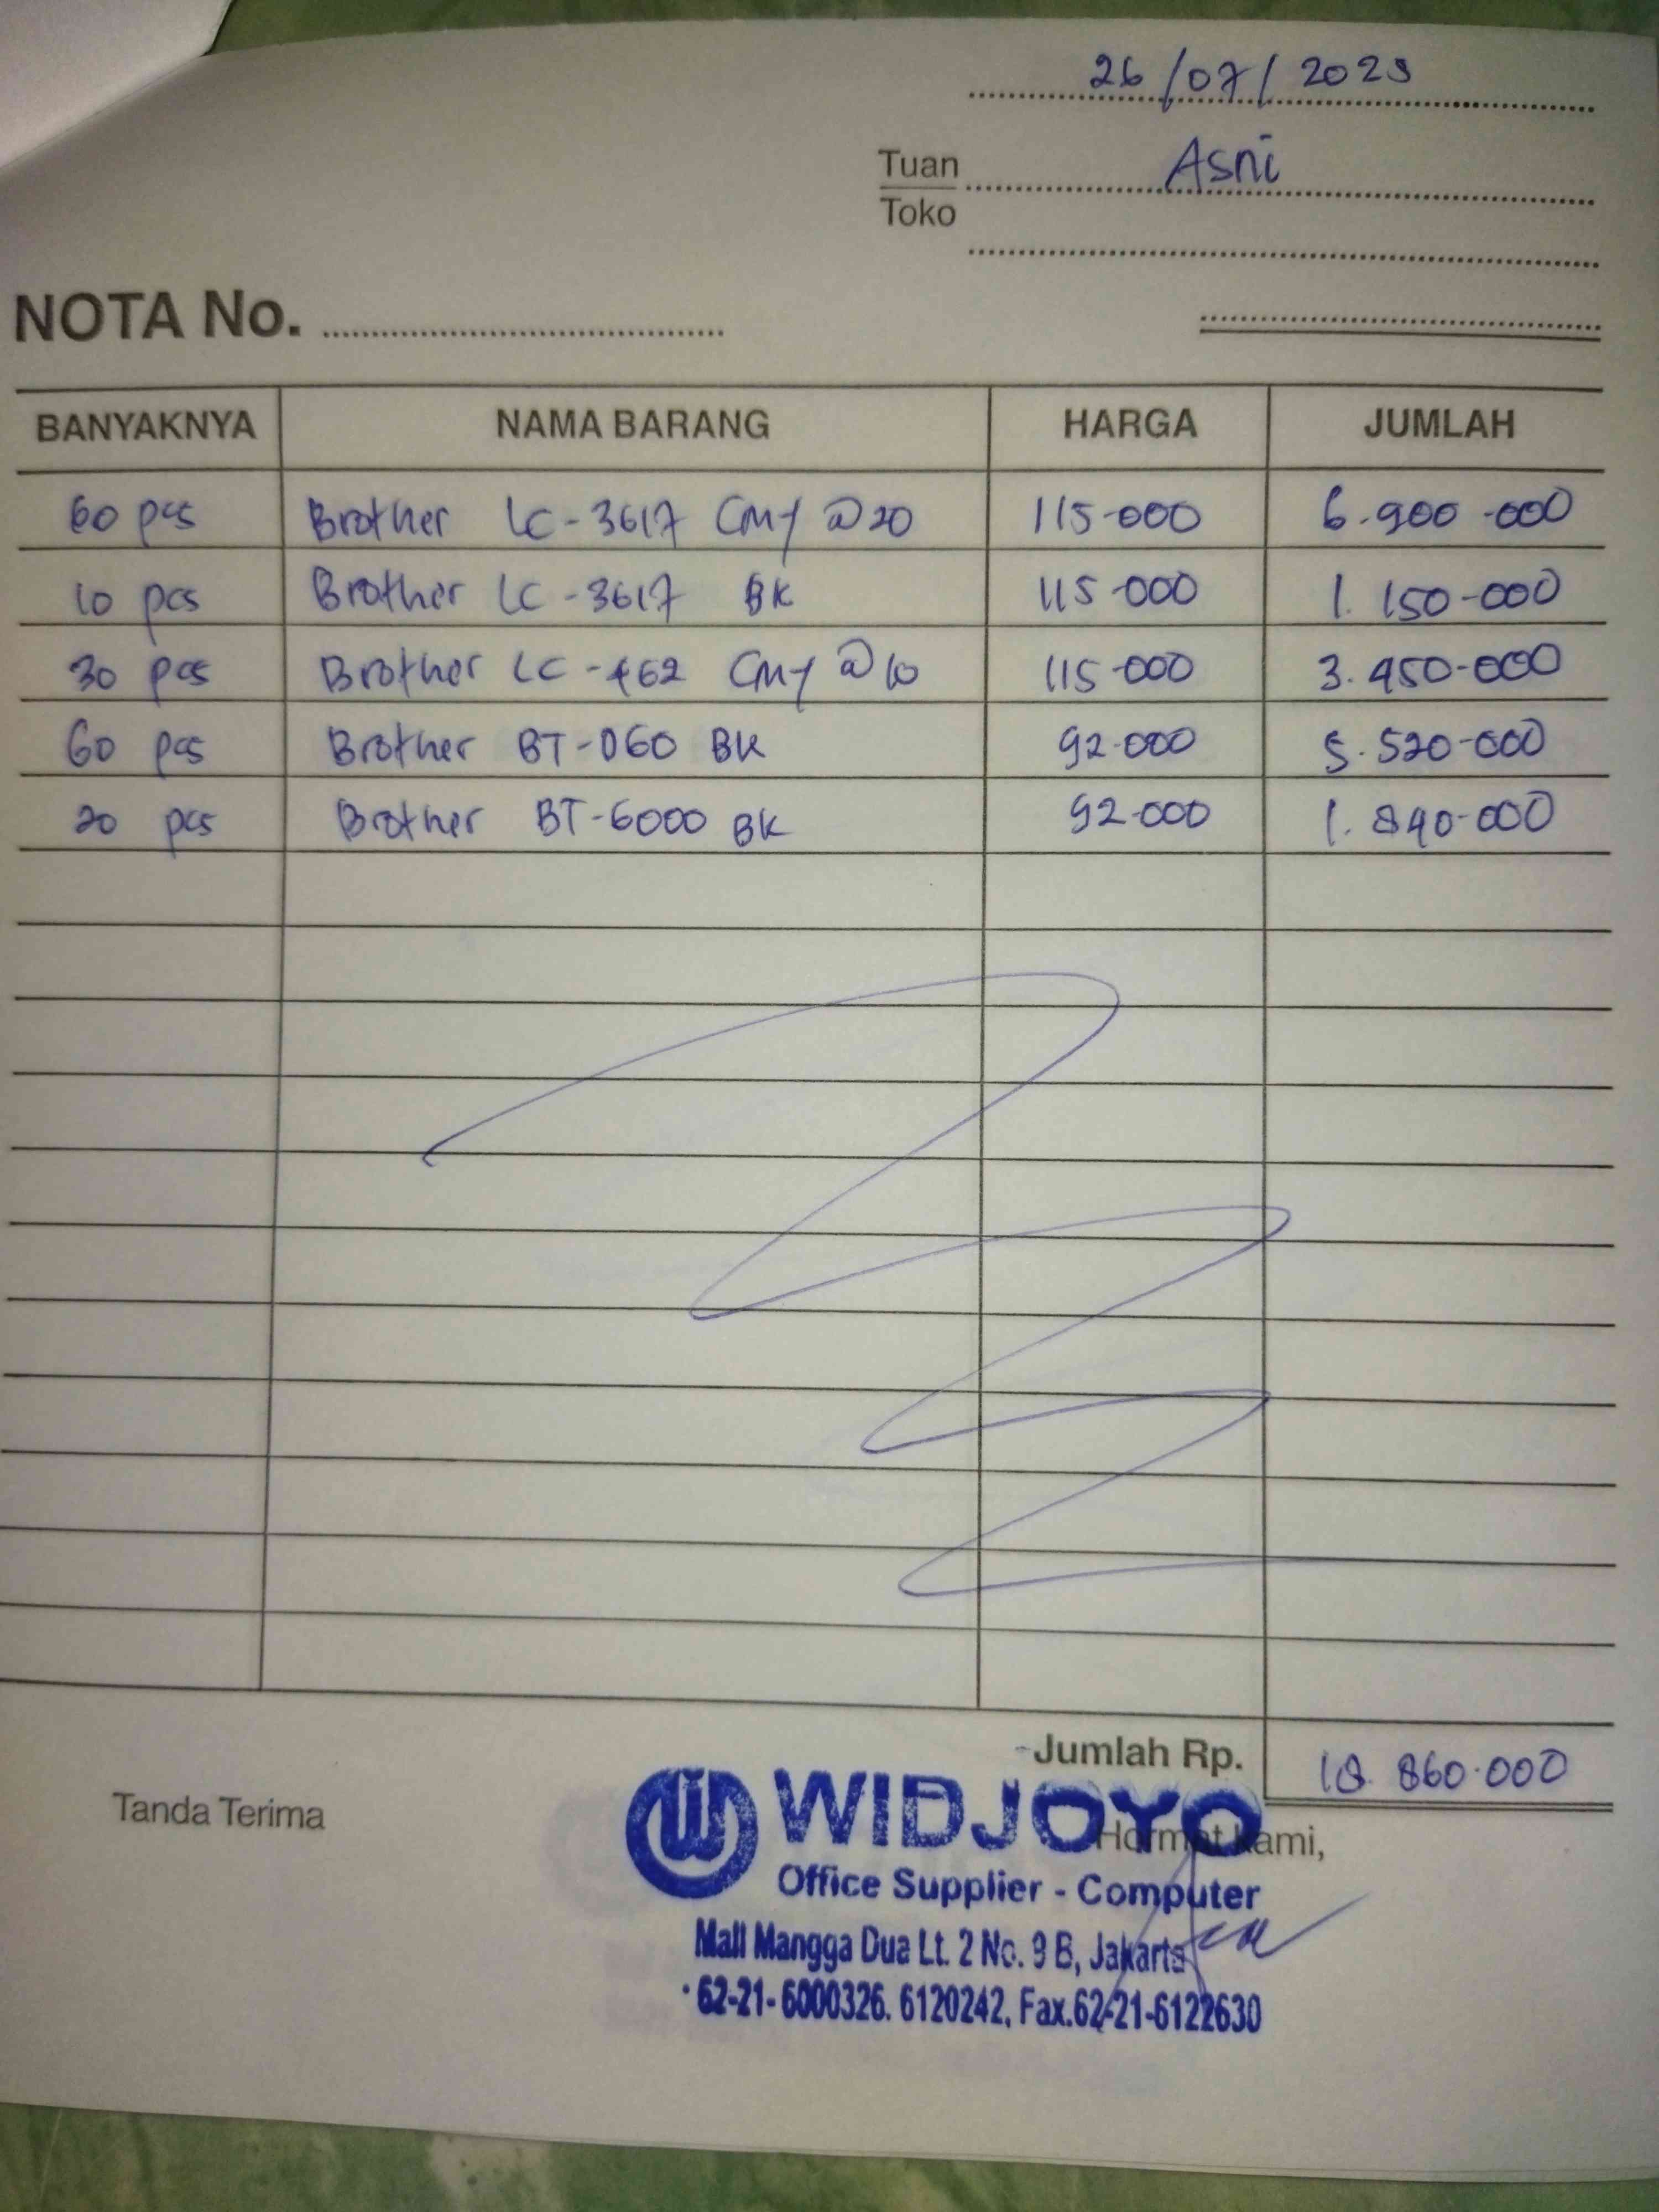 26/07/2023
Tuan Asni
Toko
NOTA No.
BANYAKNYA NAMA BARANG HARGA JUMLAH
60 pcs Brother LC-3617 CMY @20 115-000 6.900-000
10 pcs Brother LC-3617 BK 115-000 1.150-000
30 pcs Brother LC-462 CMY @10 115-000 3.450-000
60 pcs Brother BT-D60 BK 92-000 5.520-000
20 pcs Brother BT-6000 BK 92-000 1.840-000
Jumlah Rp. 18.860.000
Tanda Terima
Hormat Kami,
WIDJOYO
Office Supplier - Computer
Mall Mangga Dua Lt. 2 No. 9 B, Jakarta
62-21-6000326. 6120242, Fax.62-21-6122630